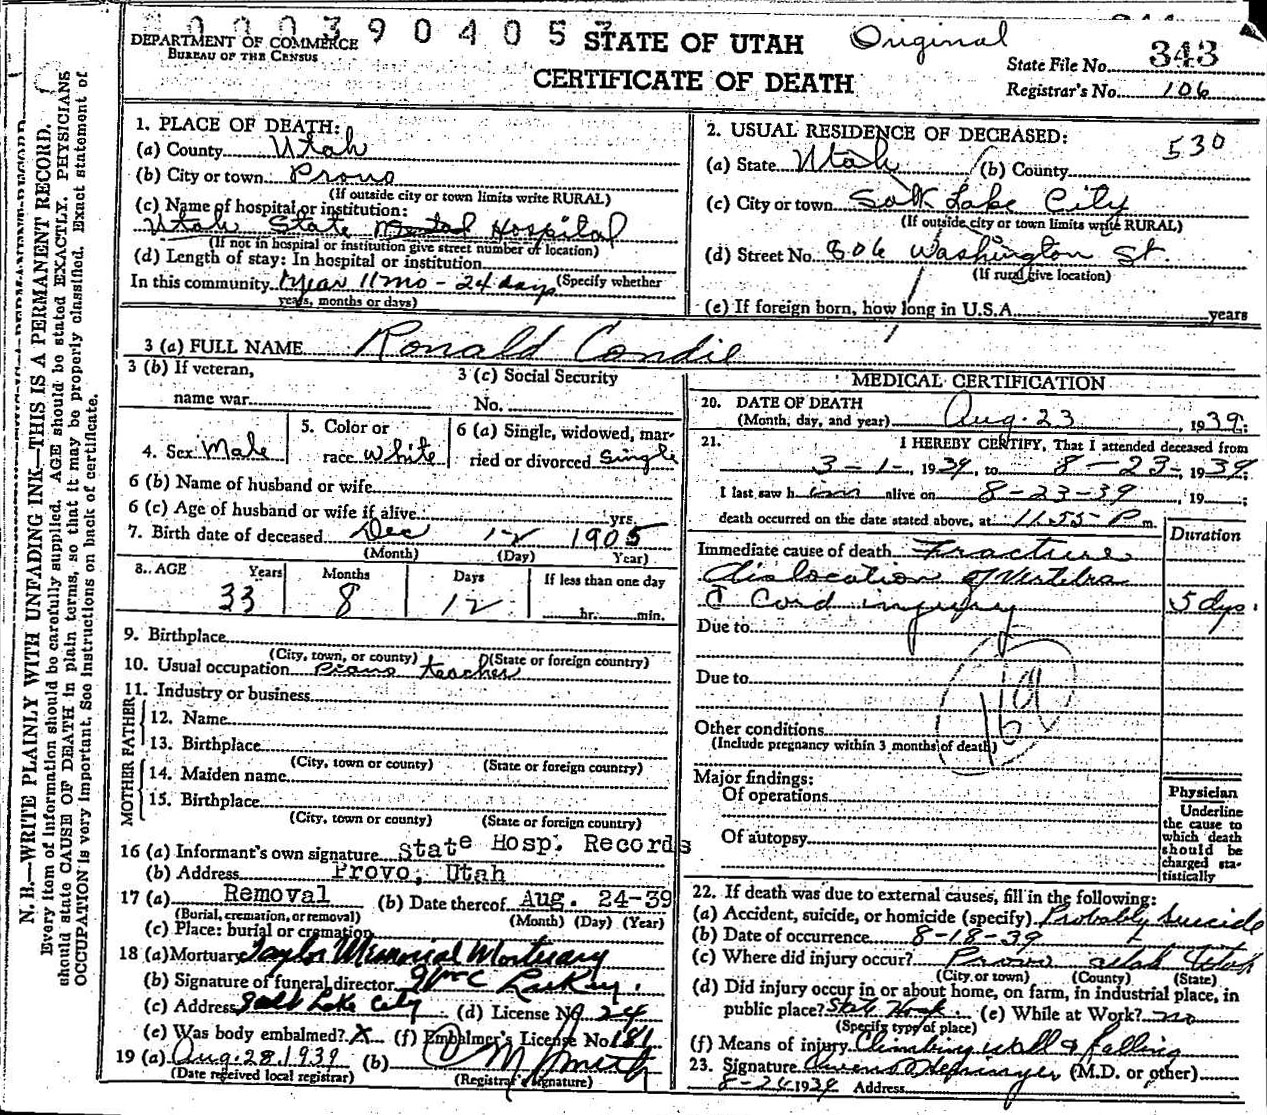 0003904053
DEPARTMENT OF COMMERCE
BUREAU OF THE CENSUS
STATE OF UTAH
CERTIFICATE OF DEATH
Original
State File No. 343
Registrar's No. 106
1. PLACE OF DEATH:
(a) County Utah
(b) City or town Provo
(If outside city or town limits write RURAL)
(c) Name of hospital or institution:
Utah State Mental Hospital
(If not in hospital or institution give street number or location)
(d) Length of stay: In hospital or institution
In this community 1 year 11 mo - 24 days (Specify whether
years, months or days)
2. USUAL RESIDENCE OF DECEASED: 530
(a) State Utah (b) County
(c) City or town Salt Lake City
(If outside city or town limits write RURAL)
(d) Street No. 806 Washington St.
(If rural give location)
(e) If foreign born, how long in U.S.A. years
3 (a) FULL NAME Ronald Condie
3 (b) If veteran,
name war
3 (c) Social Security
No.
4. Sex Male
5. Color or
race White
6 (a) Single, widowed, mar-
ried or divorced Single
6 (b) Name of husband or wife
6 (c) Age of husband or wife if alive yrs
7. Birth date of deceased Dec 12 1905
(Month) (Day) Year)
8. AGE Years Months Days If less than one day
33 8 12 hr. min.
9. Birthplace
(City, town, or county) (State or foreign country)
10. Usual occupation Piano teacher
11. Industry or business
FATHER
12. Name
13. Birthplace
(City, town or county) (State or foreign country)
MOTHER
14. Maiden name
15. Birthplace
(City, town or county) (State or foreign country)
16 (a) Informant's own signature State Hosp. Records
(b) Address Provo, Utah
17 (a) Removal (b) Date thereof Aug. 24-39
(Burial, cremation, or removal) (Month) (Day) (Year)
(c) Place: burial or cremation
18 (a) Mortuary Taylor Memorial Mortuary
(b) Signature of funeral director
(c) Address Salt Lake City (d) License No. 24
(e) Was body embalmed? X (f) Embalmer's License No. 181
19 (a) Aug. 28 1939 (b)
(Date received local registrar) (Registrar's signature)
MEDICAL CERTIFICATION
20. DATE OF DEATH
(Month, day, and year) Aug. 23, 1939.
21. I HEREBY CERTIFY, That I attended deceased from
3-1-, 1939, to 8-23-, 1939
I last saw him alive on 8-23-39, 19 ;
death occurred on the date stated above, at 11.55 P m.
Duration
Immediate cause of death Fracture
dislocation of Vertebra
c Cord injury 5 dys.
Due to
Due to
Other conditions
(Include pregnancy within 3 months of death)
Major findings:
Of operations
Of autopsy
Physician
Underline
the cause to
which death
should be
charged sta-
tistically
22. If death was due to external causes, fill in the following:
(a) Accident, suicide, or homicide (specify) Probably Suicide
(b) Date of occurrence 8-18-39
(c) Where did injury occur? Provo Utah Utah
(City or town) (County) (State)
(d) Did injury occur in or about home, on farm, in industrial place, in
public place? State Hosp. (e) While at Work? no
(Specify type of place)
(f) Means of injury Climbing wall & falling
23. Signature (M.D. or other)
8-24 1939 Address
N. B.—WRITE PLAINLY WITH UNFADING INK—THIS IS A PERMANENT RECORD.
Every item of information should be carefully supplied. AGE should be stated EXACTLY. PHYSICIANS
should state CAUSE OF DEATH in plain terms, so that it may be properly classified. Exact statement of
OCCUPATION is very important. See instructions on back of certificate.